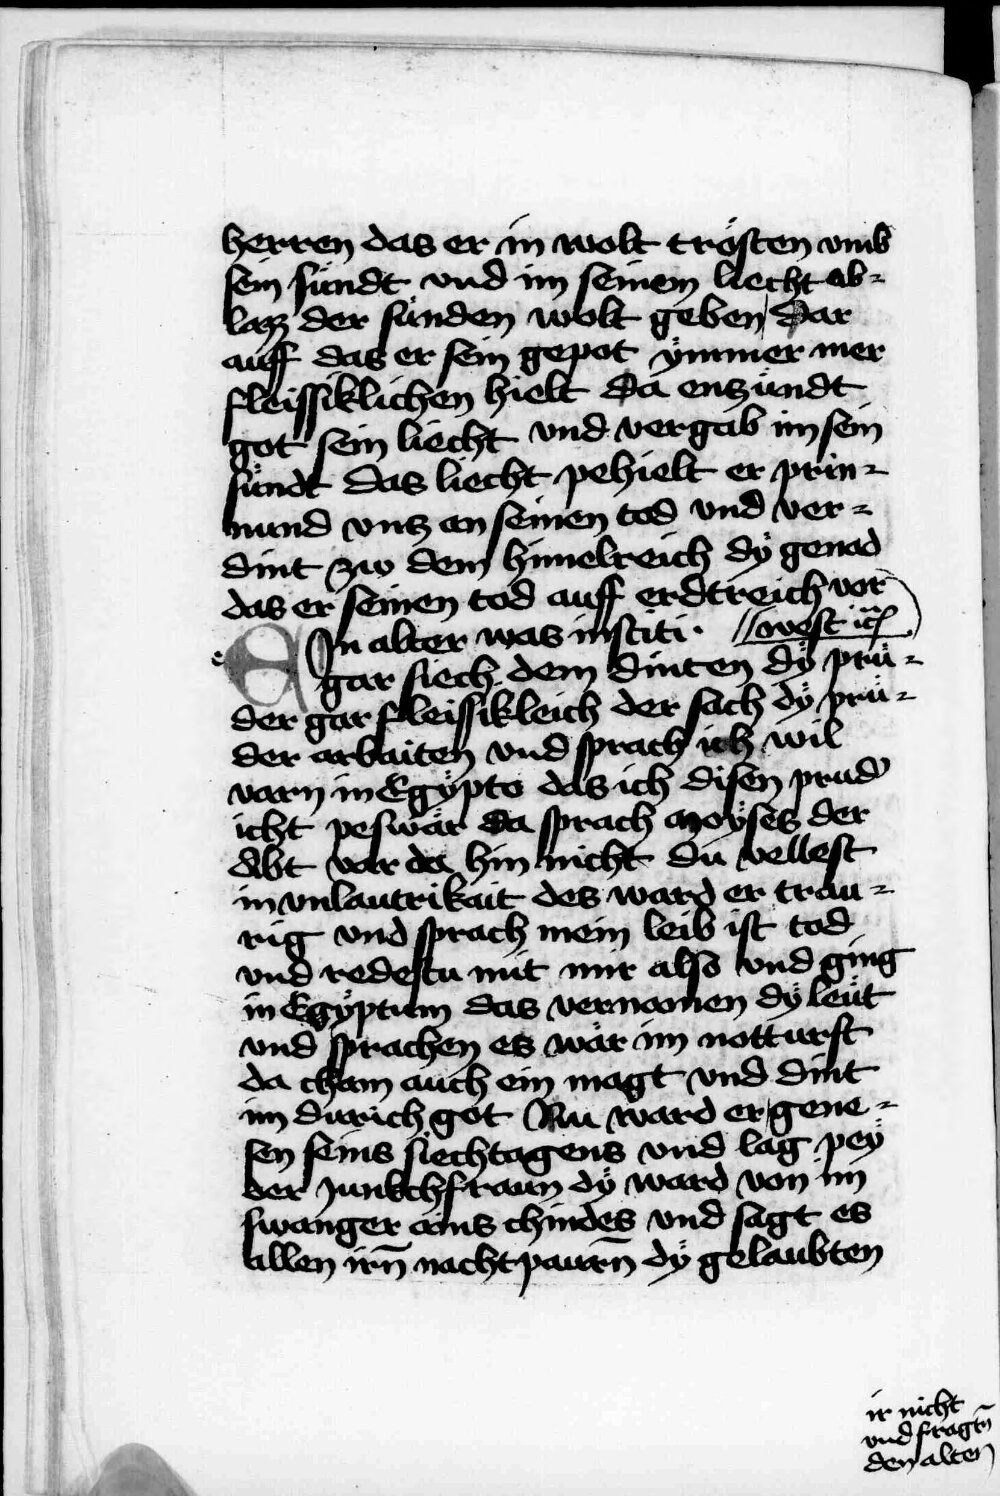 herren das er in wolt trösten vmb
sein sündt vnd im seinem liecht ab-
lazz der sünden wolt geben Dar
auff das er sein gepot ÿmmer mer
fleissiklichen hielt Da enzündt
got sein liecht vnd vergab im sein
sündt das liecht pehielt er prin-
nund vntz an seinen tod vnd ver-
dint zw dem himelreich dÿ genad
das er seinen tod auff erdtreich vor
west
EIn alter was in sciti
gar siech dem dinten dÿ prü-
der gar fleissikleich der sach dÿ prü-
der arbaiten vnd sprach ich wil
varn in Egÿpto das ich disen prud'
icht peswär da sprach moÿses der
abt var da hin nicht du vellest
in vnlautrikait des ward er trau-
rig vnd sprach mein leib ist tod
vnd redestu mit mir also vnd ging
in Egÿptum das vernamen dÿ leüt
vnd sprachen es wär im notturft
da cham auch ein magt vnd dint
im durich got Nu ward er gene-
sen seins siechtagens vnd lag peÿ
der junkchfraun dÿ ward von im
swanger ains chindes vnd sagt es
allen irn̄ nachtpaurn̄ dÿ gelaubten
ir nicht
vnd fragtn̄
den alten